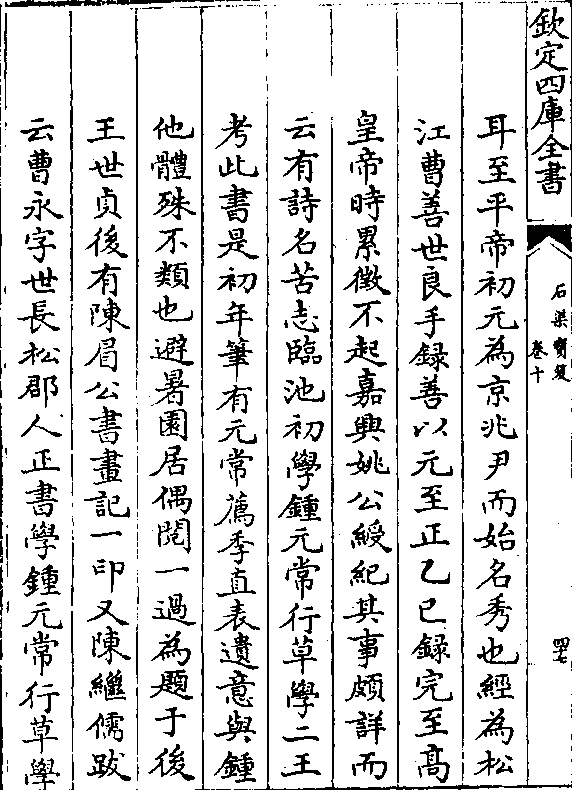 欽定四庫全書
石渠寶笈
卷十
耳至平帝初元為京兆尹而始名秀也經為松
江曹善世良手錄善以元至正乙巳錄完至髙
皇帝時累徵不起嘉興姚公綬紀其事頗詳而
云有詩名苦志臨池初學鍾元常行草學二王
考此書是初年筆有元常薦季直表遺意與鍾
他體殊不類也避暑園居偶閱一過為題于後
王世貞後有陳眉公書畫記一印又陳繼儒跋
云曹永字世長松郡人正書學鍾元常行草學